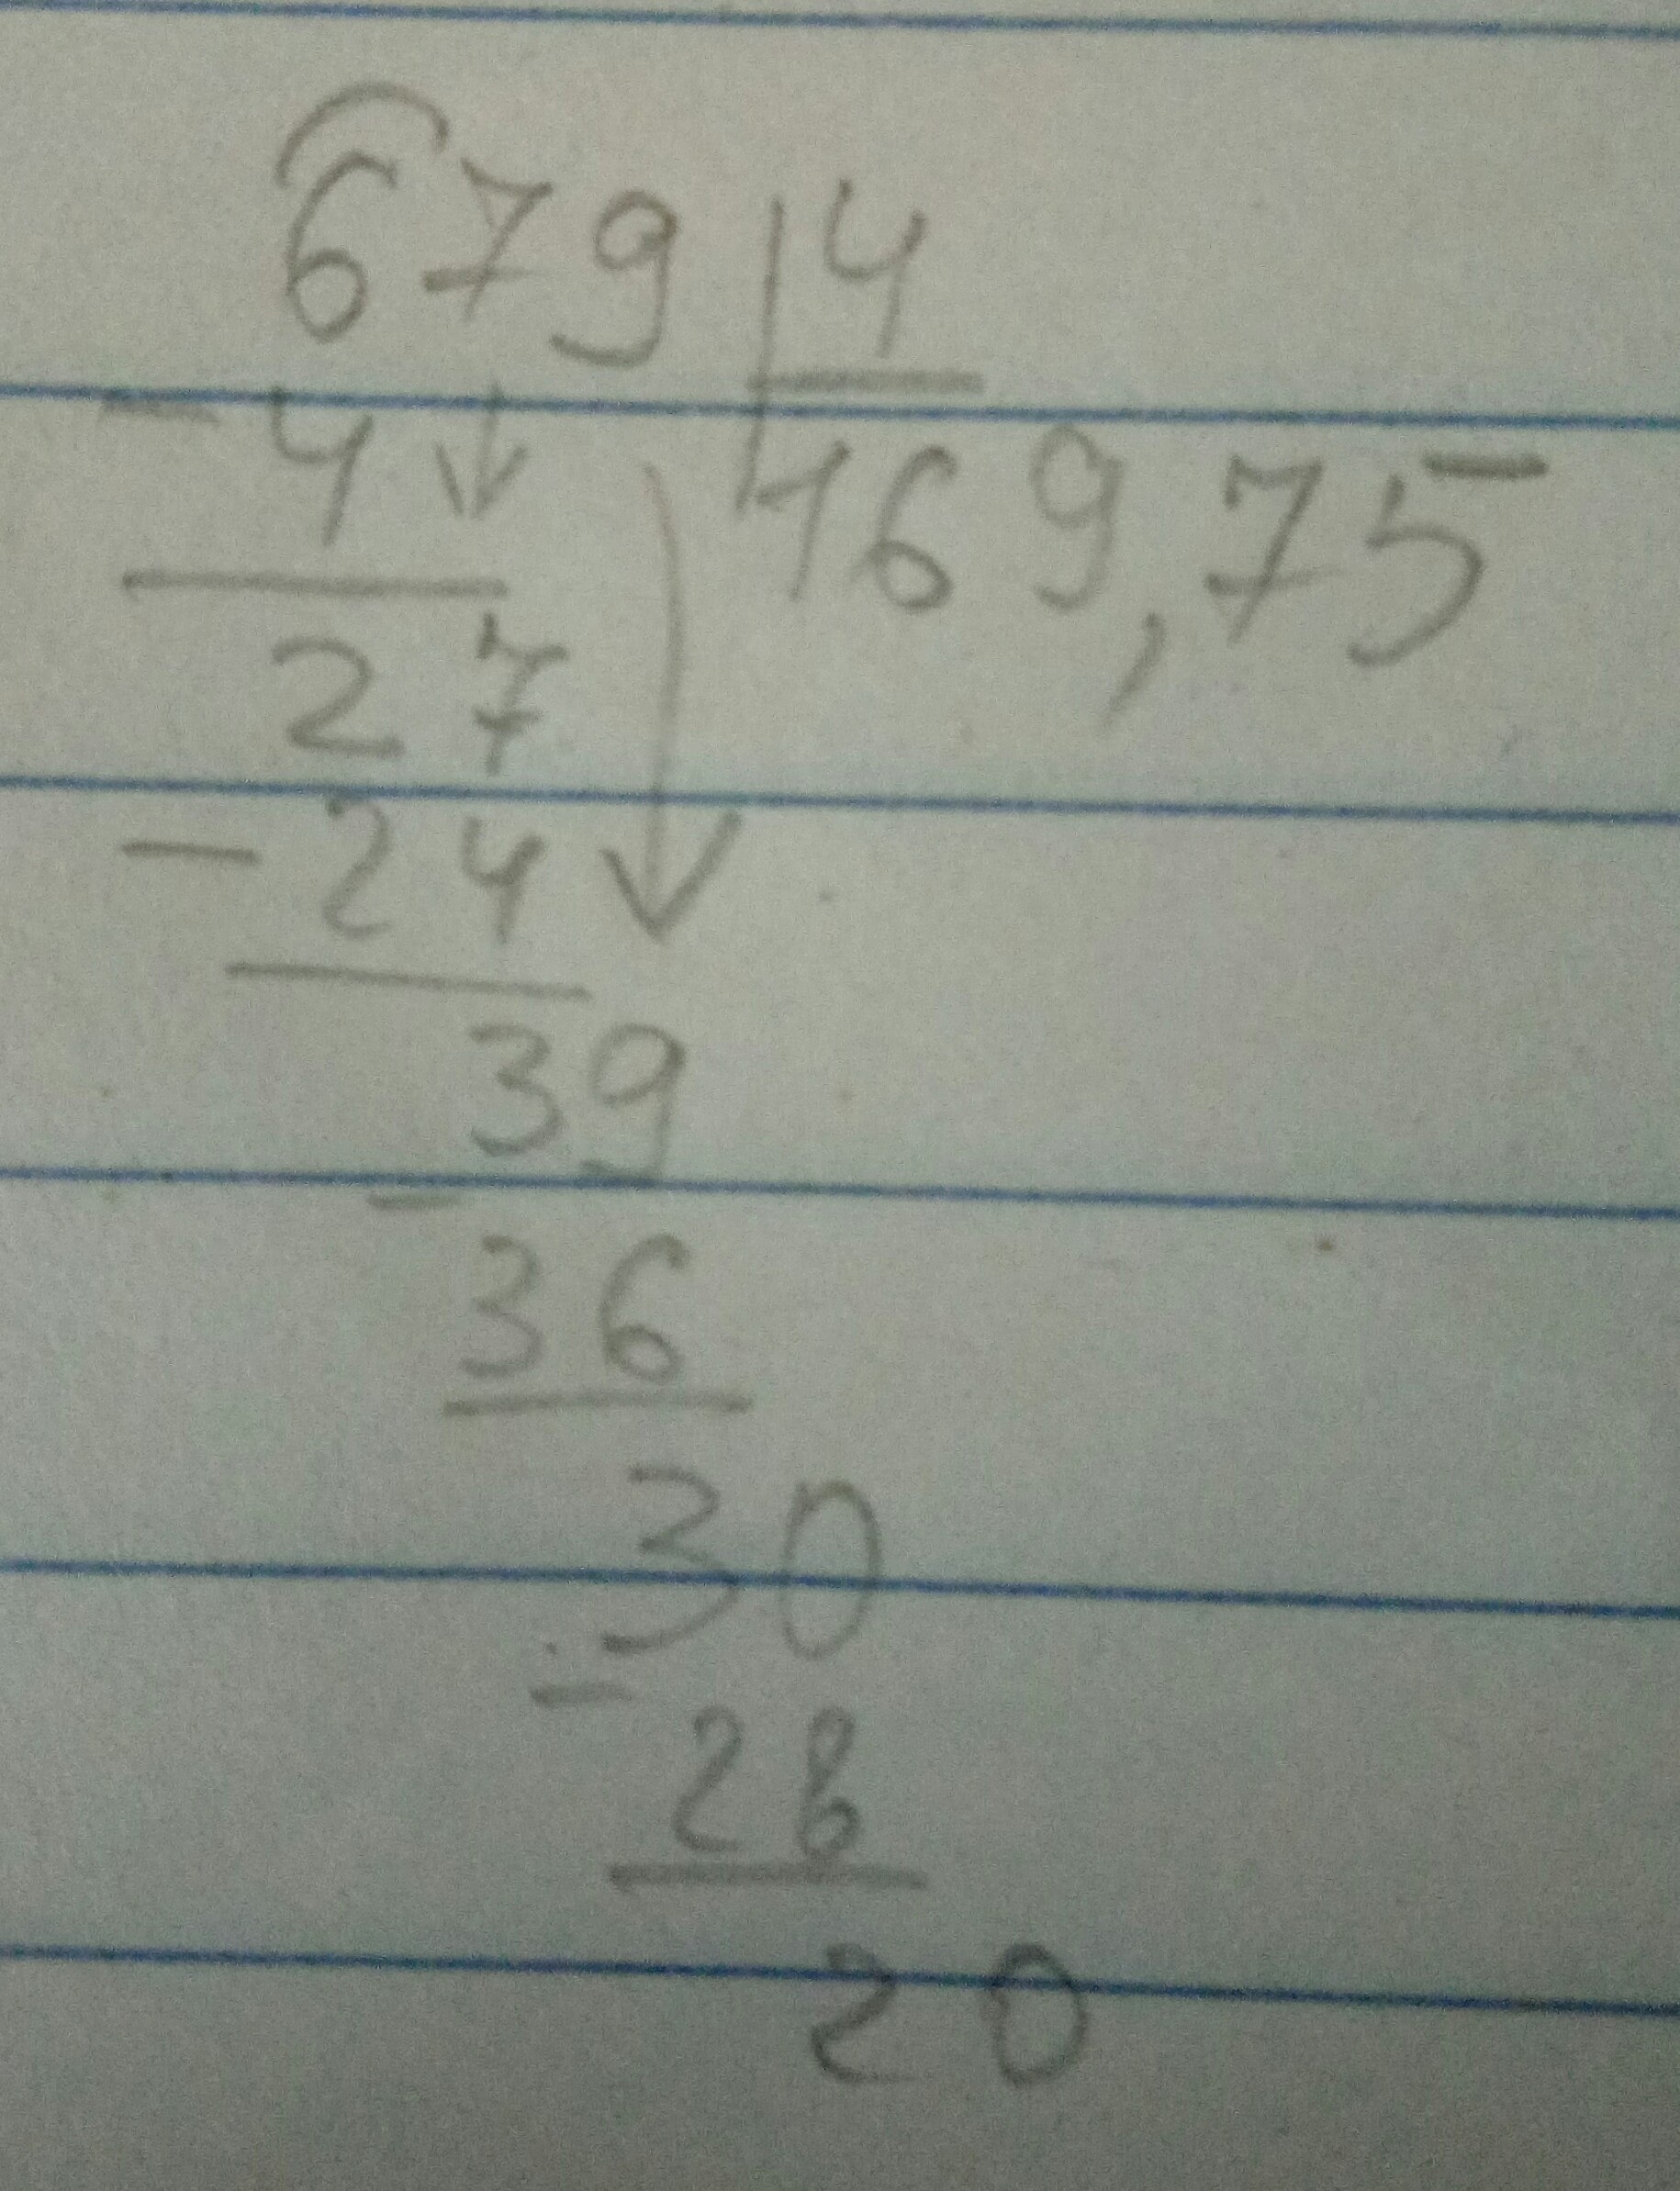 679 4
- 4 169,75
27
- 24
39
- 36
30
- 28
20